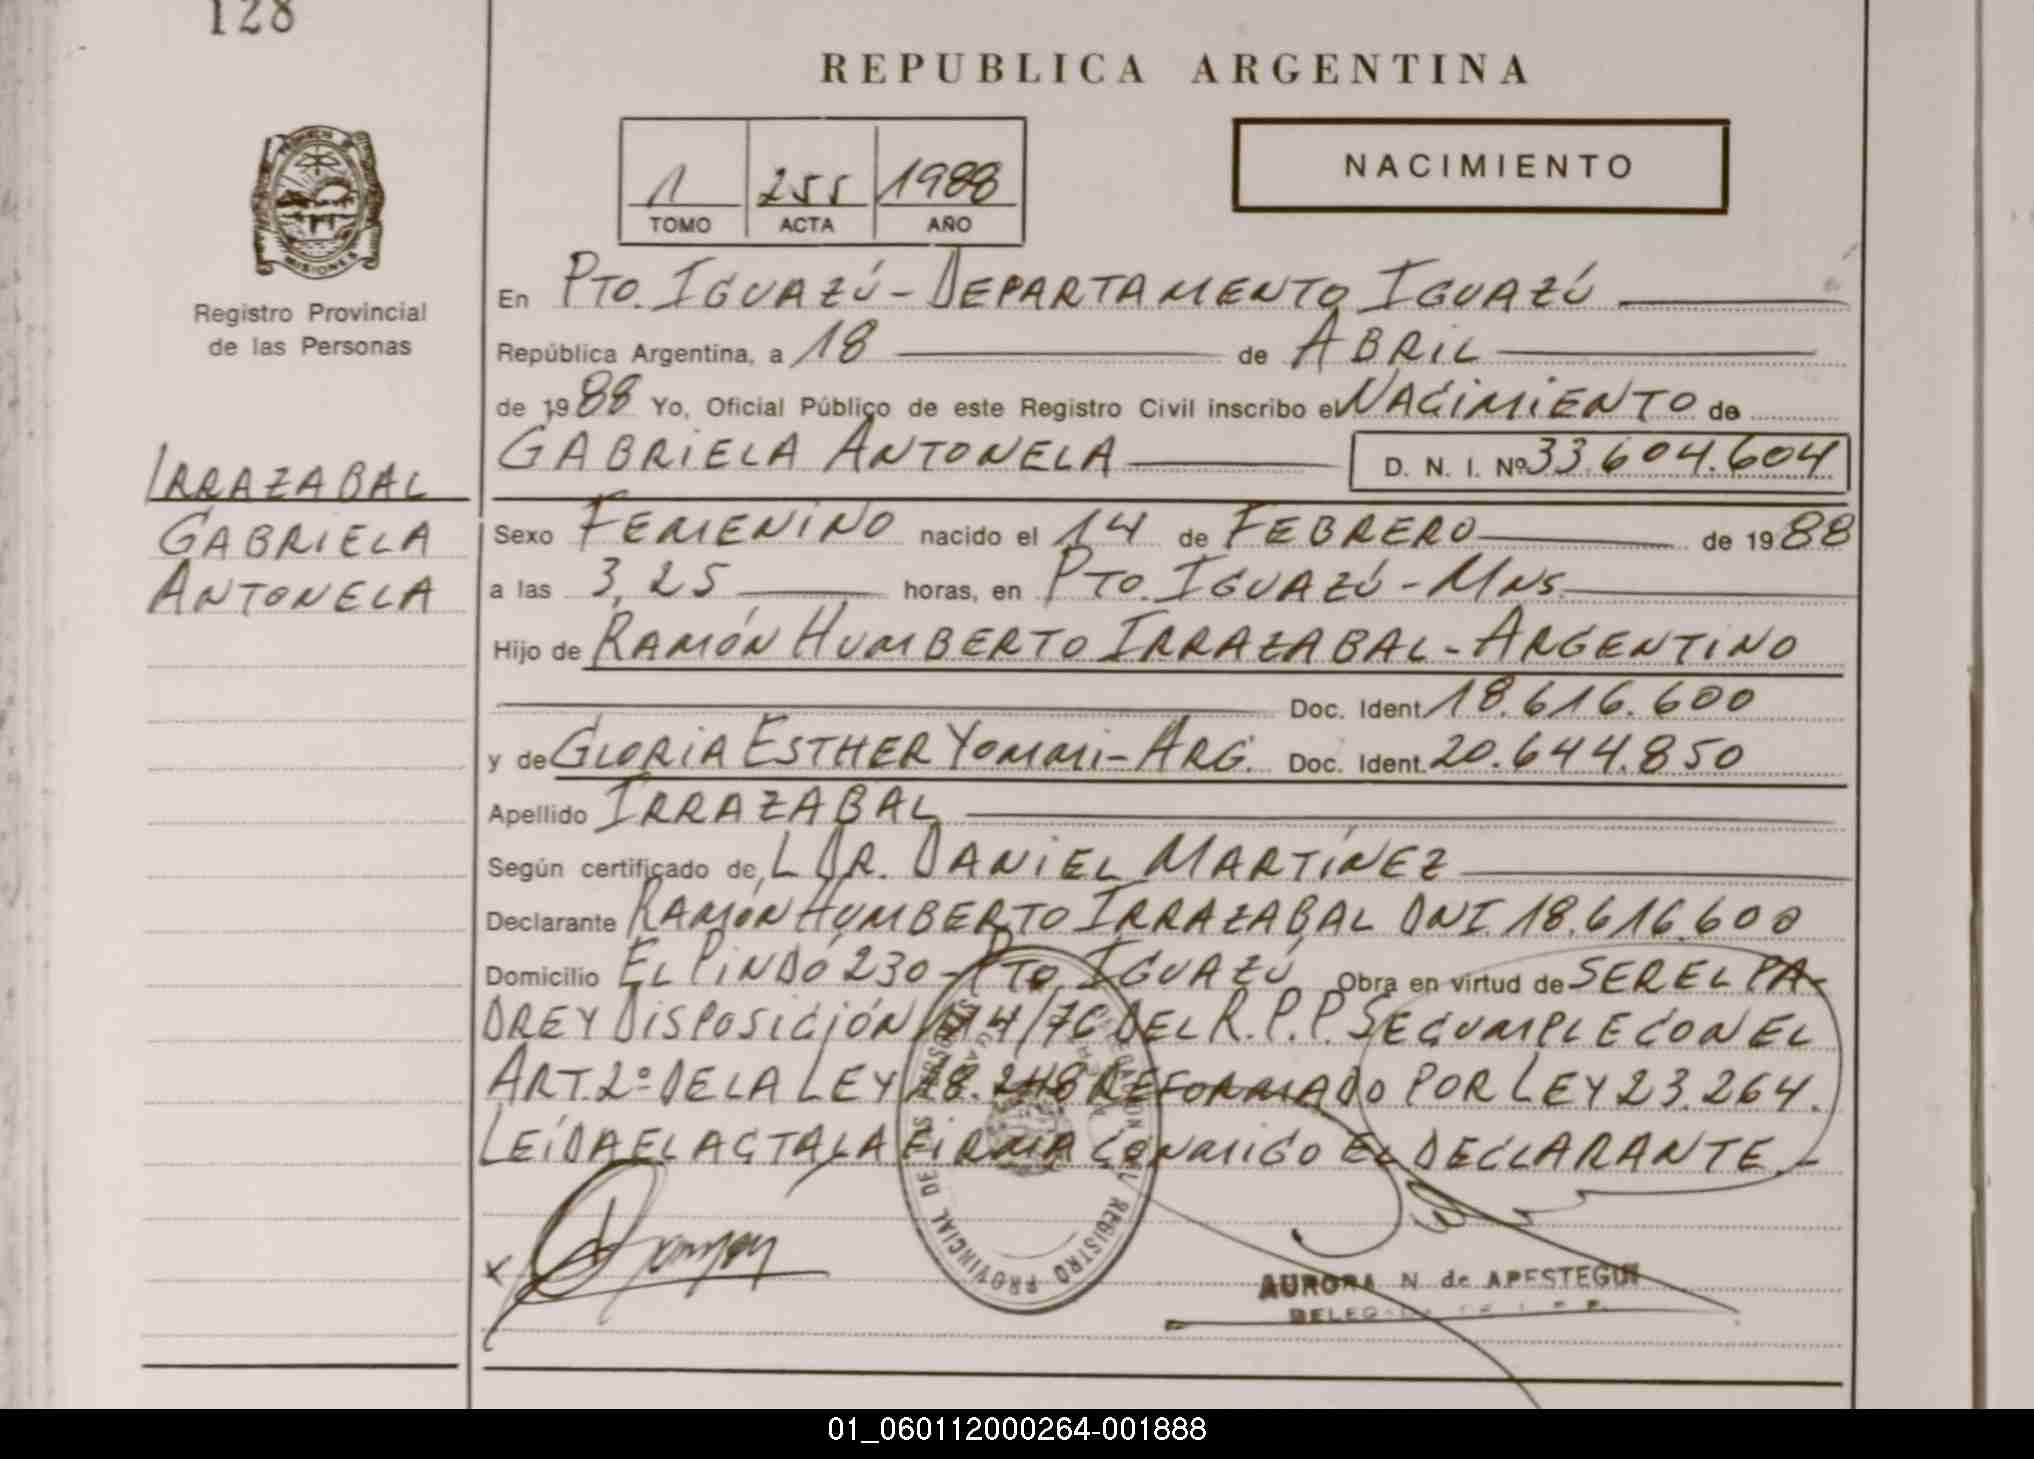 128
REPUBLICA ARGENTINA
NACIMIENTO
1 255 1988
TOMO ACTA AÑO
MISIONES
Registro Provincial
de las Personas
IRRAZABAL
GABRIELA
ANTONELA
En PTO. IGUAZÚ - DEPARTAMENTO IGUAZÚ
República Argentina, a 18 de ABRIL
de 1988 Yo, Oficial Público de este Registro Civil inscribo el NACIMIENTO de
GABRIELA ANTONELA D. N. I. Nº 33.604.604
Sexo FEMENINO nacido el 14 de FEBRERO de 1988
a las 3,25 horas, en PTO. IGUAZÚ - MNS.
Hijo de RAMÓN HUMBERTO IRRAZABAL - ARGENTINO
Doc. Ident. 18.616.600
y de GLORIA ESTHER YOMMI - ARG. Doc. Ident. 20.644.850
Apellido IRRAZABAL
Según certificado de L DR. DANIEL MARTÍNEZ
Declarante RAMÓN HUMBERTO IRRAZABAL DNI. 18.616.600
Domicilio EL PINDÓ 230 - PTO. IGUAZÚ Obra en virtud de SER EL PA-
DRE Y DISPOSICIÓN /76 DEL R.P.P. SE CUMPLE CON EL
ART. 2º DE LA LEY 18.248 REFORMADO POR LEY 23.264.
LEÍDA EL ACTA LA FIRMA CONMIGO EL DECLARANTE.-
REGISTRO PROVINCIAL DE LAS
AURORA N de APESTEGUI
01_060112000264-001888